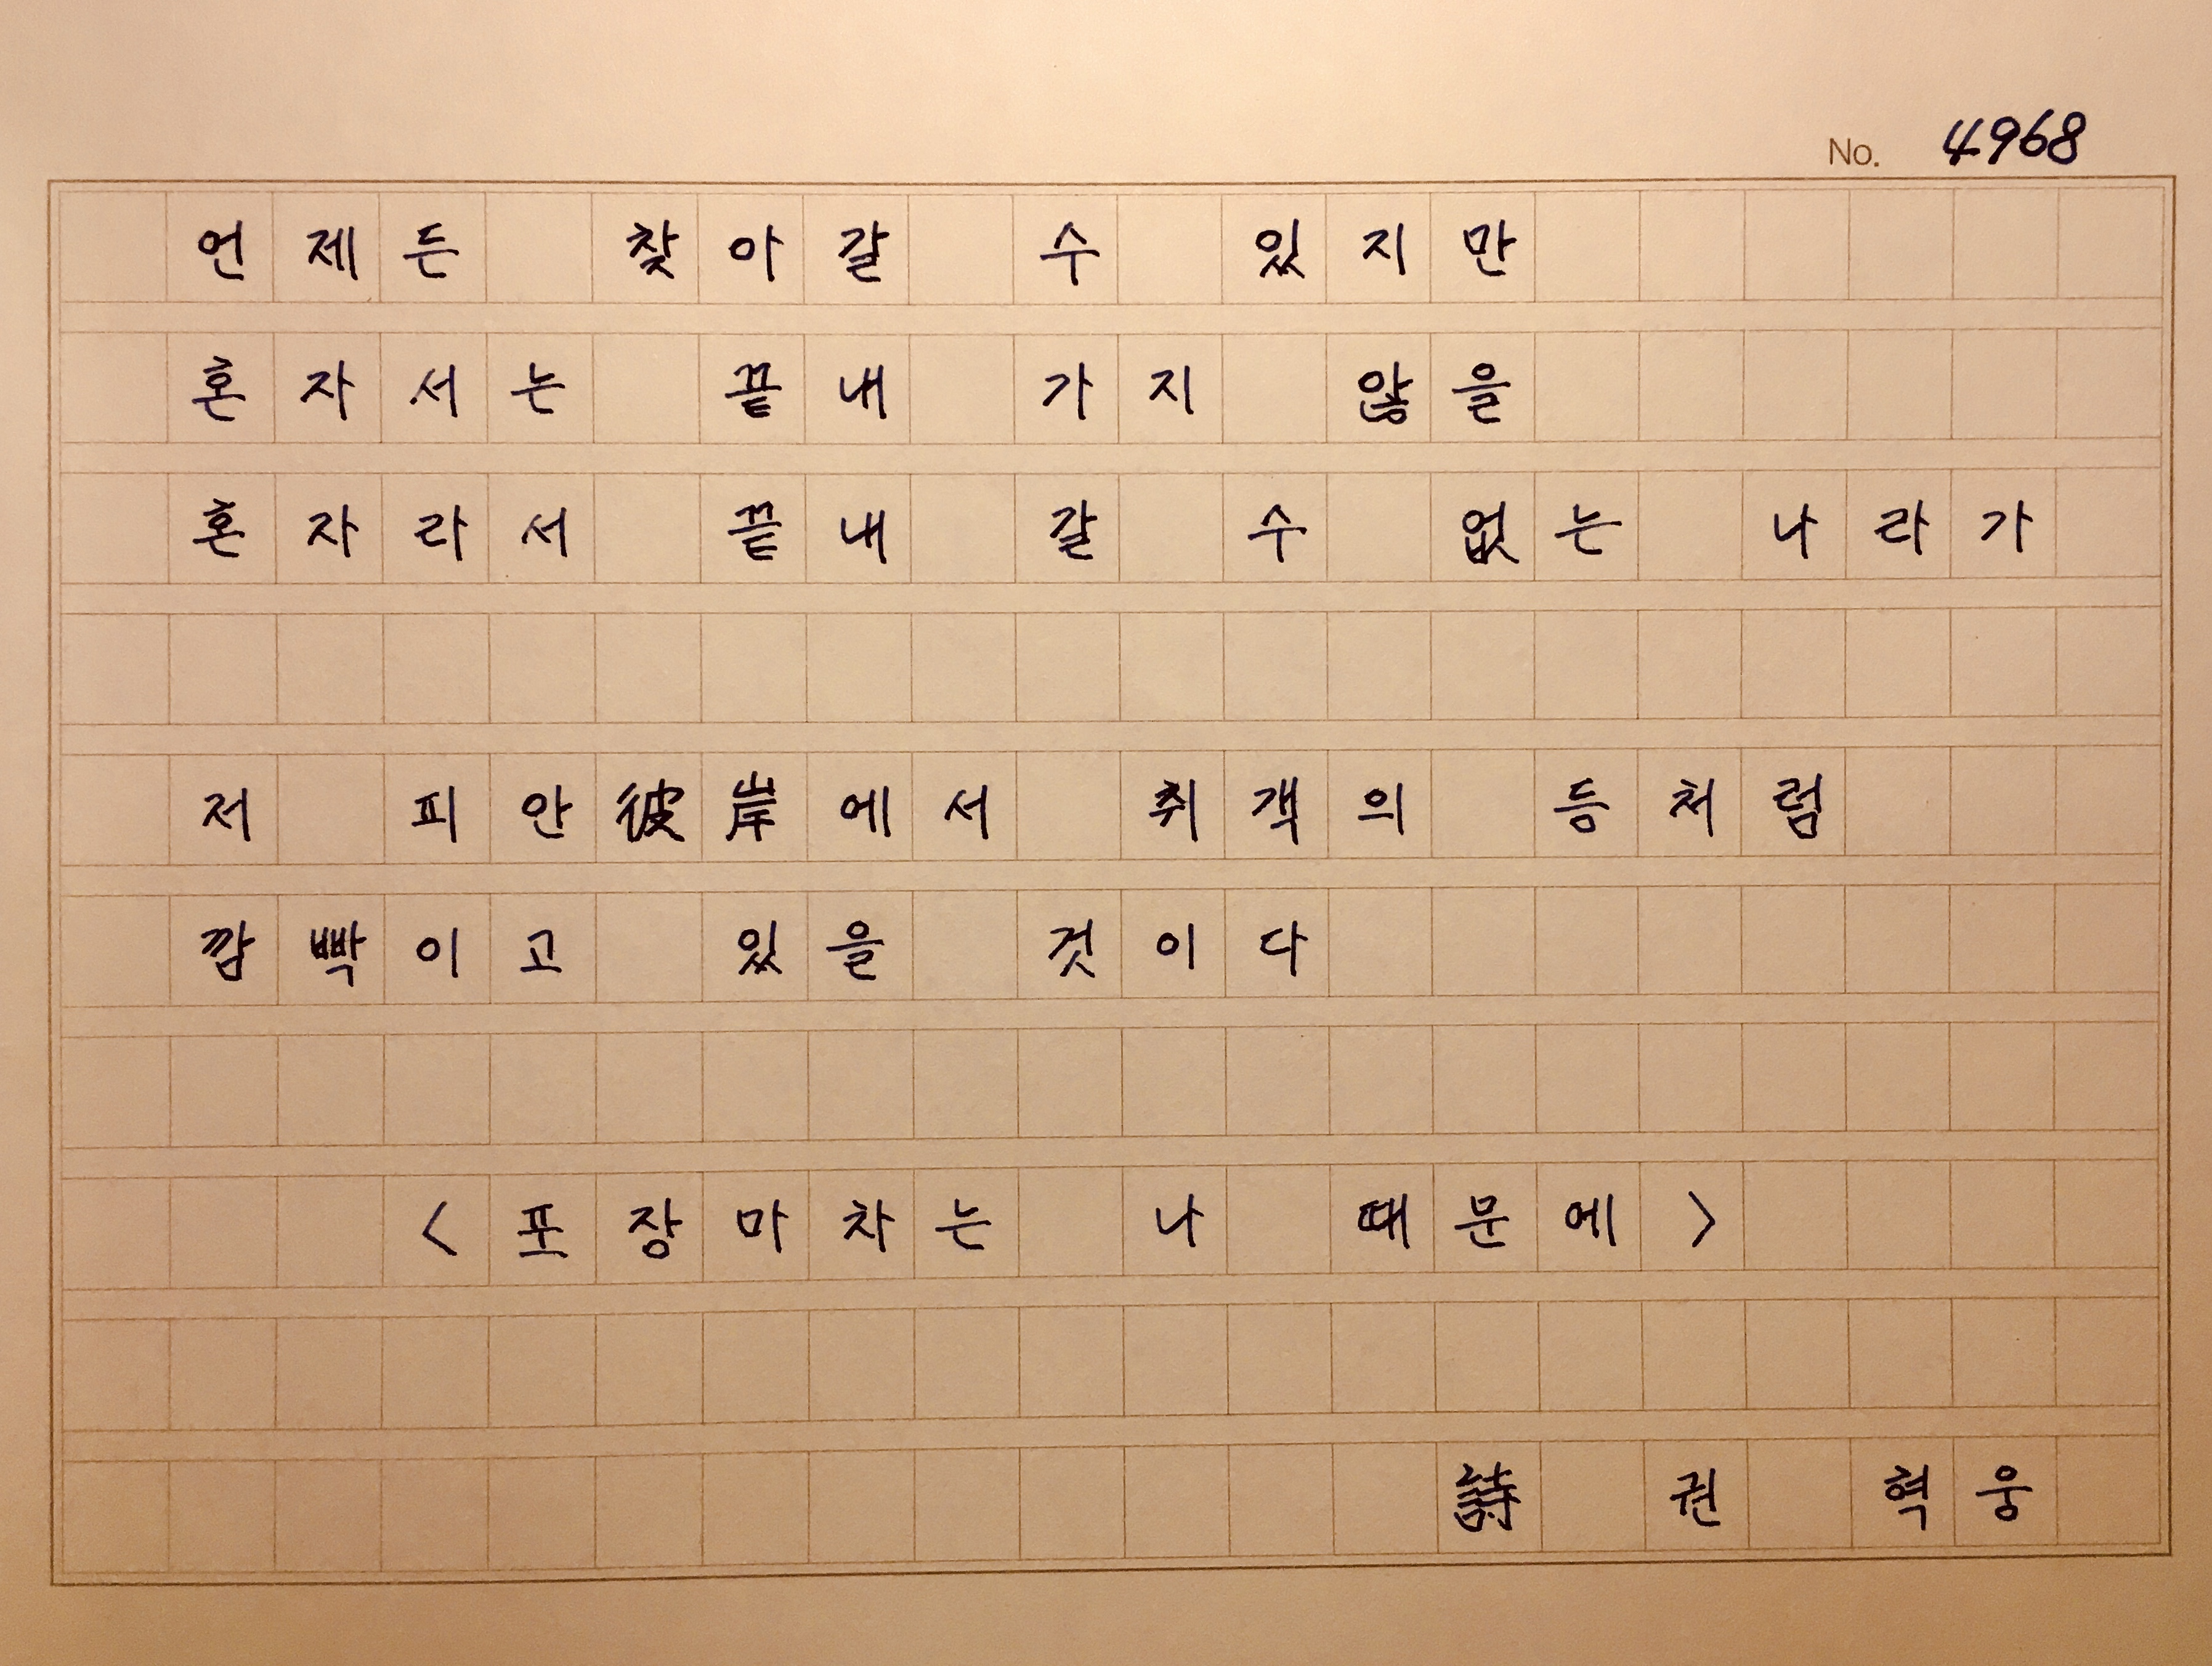 No. 4968
언제든 찾아갈 수 있지만
혼자서는 끝내 가지 않을
혼자라서 끝내 갈 수 없는 나라가
저 피안彼岸에서 취객의 등처럼
깜빡이고 있을 것이다
<포장마차는 나 때문에>
詩 권 혁웅